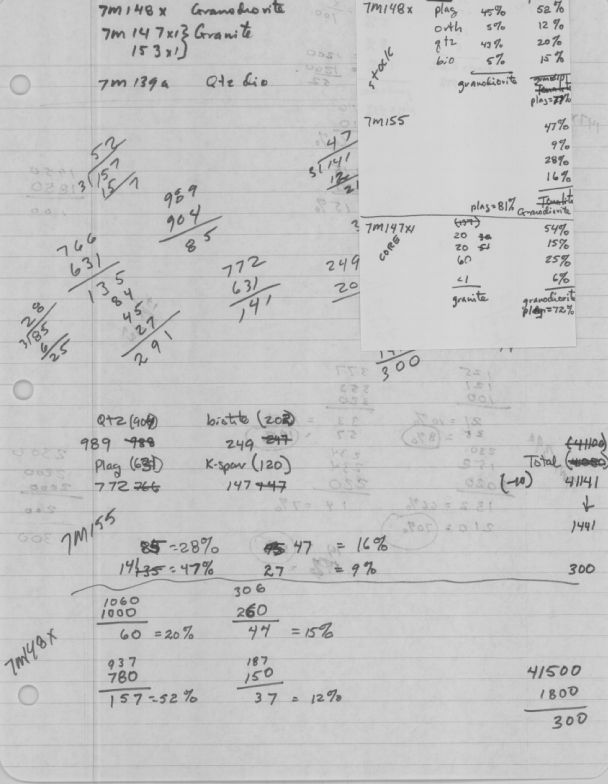 7M148x Granodiorite
7M 147x1} Granite
153x1}
7M 139a Qtz dio
52
3/157
157
989
904
85
47
3/141
12
21
766
631
135
84
45
27
291
772
631
141
249
20
28
3/85
6
25
300
7M148x plag 45% 52%
orth 5% 12%
qtz 43% 20%
bio 5% 15%
STOCK
granodiorite
Tonalite
plag=77%
7M155
47%
9%
28%
16%
plag=81% Tonalite
Granodiorite
7M147x1 (197) 54%
CORE 20 15%
20 25%
60
<1 6%
granite granodiorite
plag=72%
Qtz (904) biotite (202)
989 988 249 247
Plag (631) K-spar (120)
772 766 147 147
(41100)
Total
(-10) 41141
↓
1441
300
7M155
85 = 28% 47 = 16%
141 135 = 47% 27 = 9%
7M148x
1060 306
1000 260
60 = 20% 44 = 15%
937 187
780 150
157 = 52% 37 = 12%
41500
1800
300